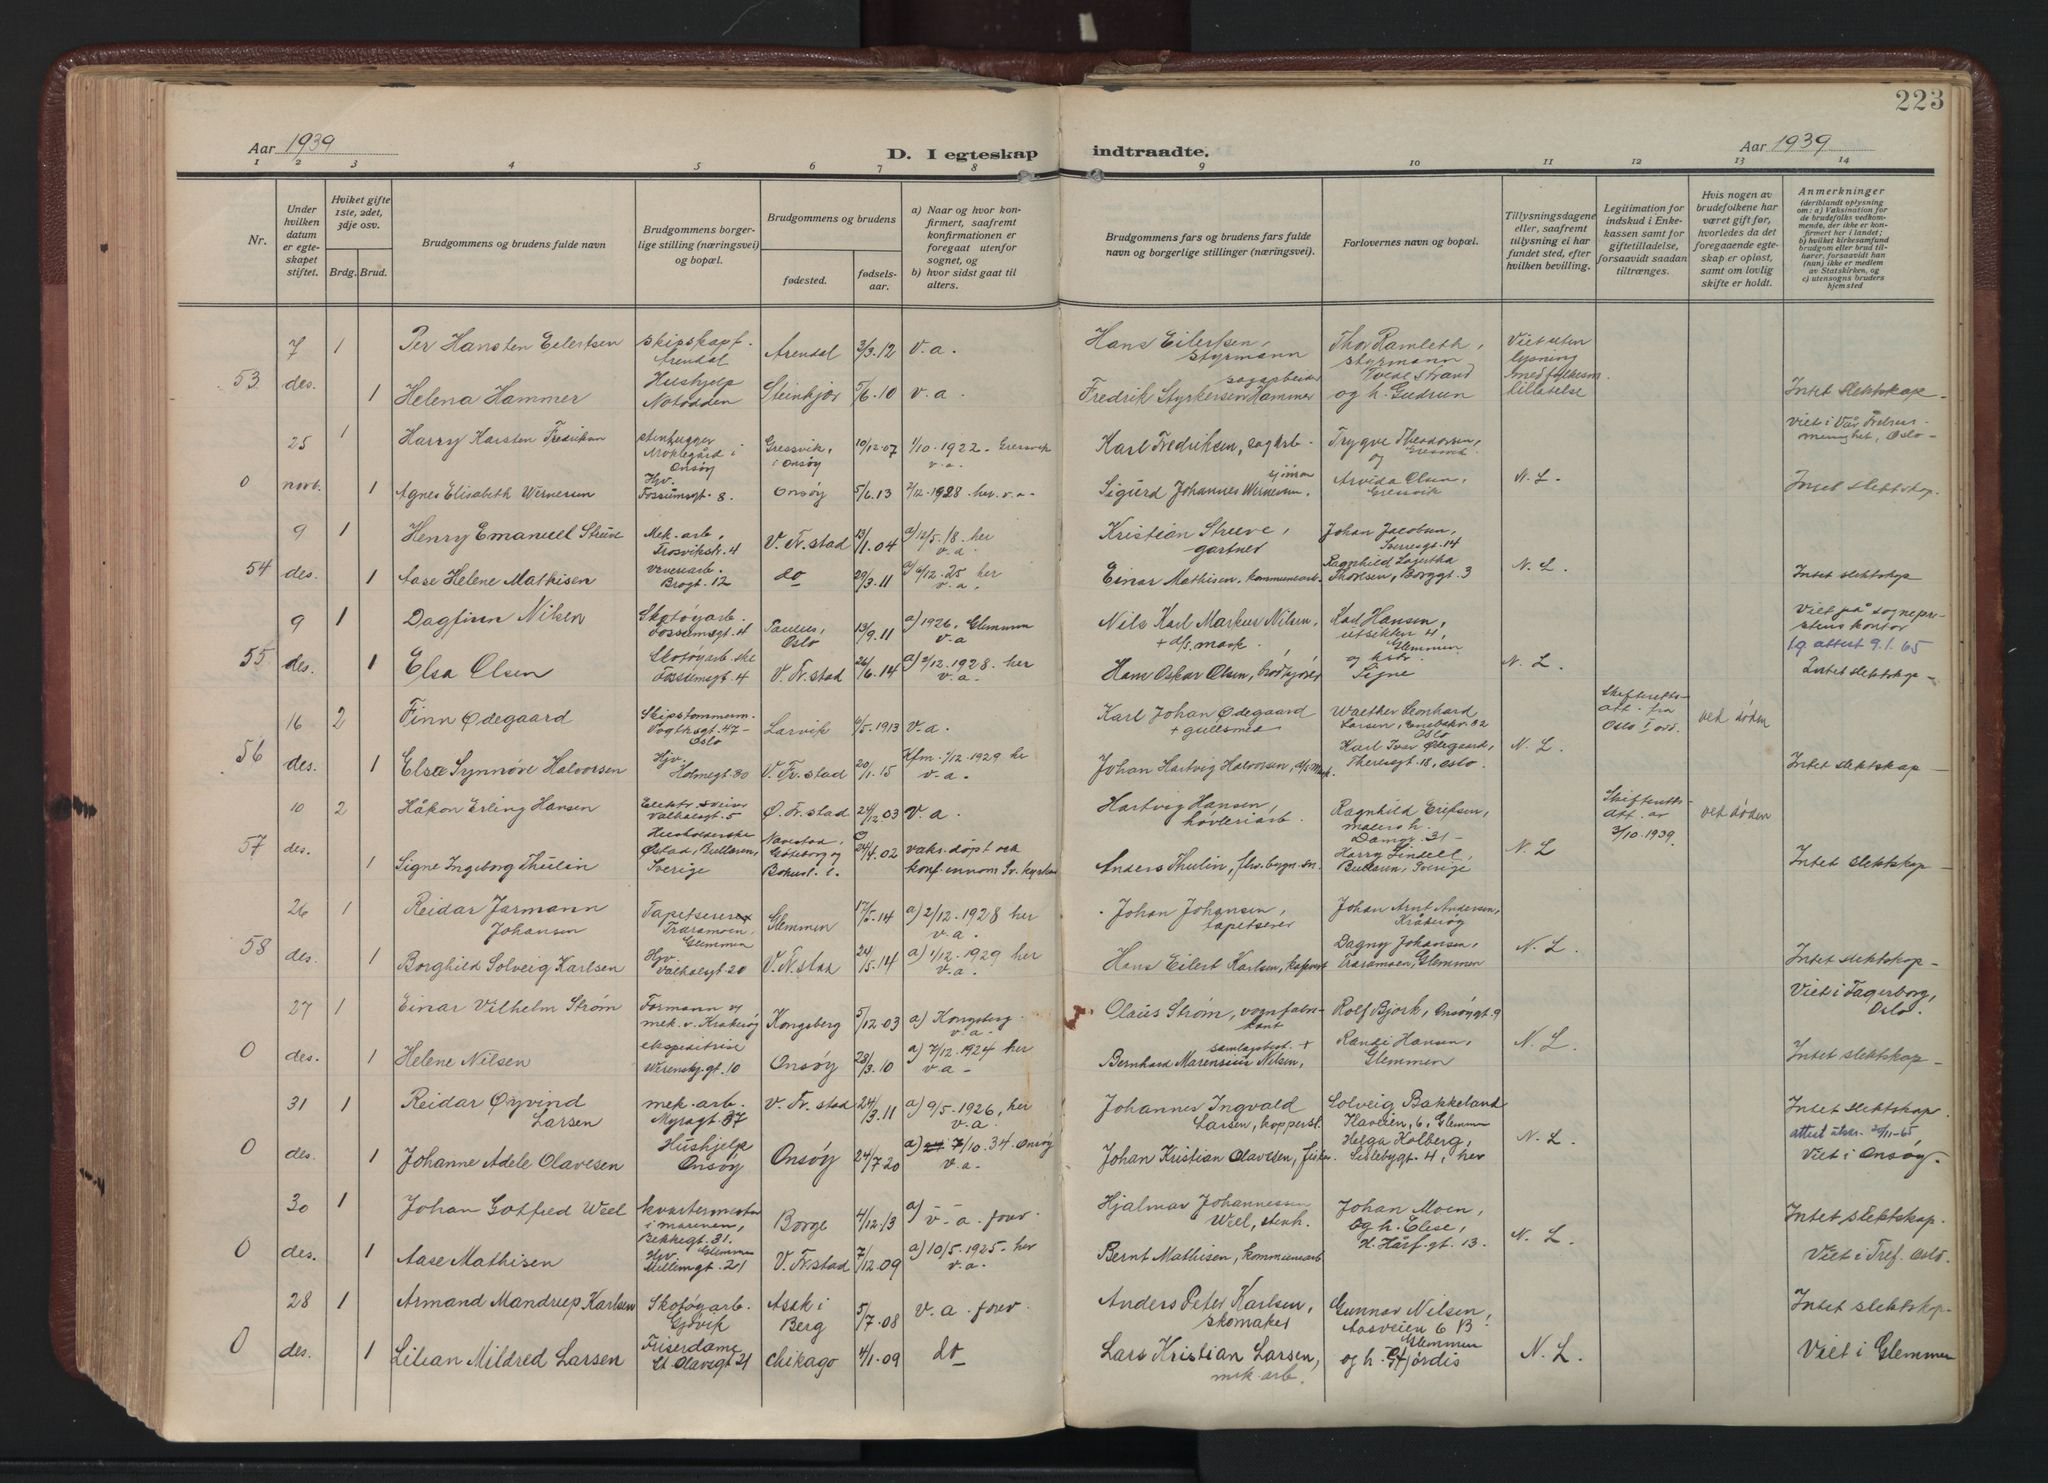 223
Aar 1939
D. I egteskap indtraadte.
Aar 1939
1 2 3 4 5 6 7 8 9 10 11 12 13 14
Nr.
Under hvilken datum er egteskapet stiftet.
Hviket gifte 1ste, 2det, 3dje osv.
Brdg. Brud.
Brudgommens og brudens fulde navn
Brudgommens borgerlige stilling (næringsvei) og bopæl.
Brudgommens og brudens
fødested.
fødselsaar.
a) Naar og hvor konfirmert, saafremt konfirmationen er foregaat utenfor sognet, og
b) hvor sidst gaat til alters.
Brudgommens fars og brudens fars fulde navn og borgerlige stillinger (næringsvei).
Forlovernes navn og bopæl.
Tillysningsdagene eller, saafremt tillysning ei har fundet sted, efter hvilken bevilling.
Legitimation for indskud i Enkekassen samt for giftetilladelse, forsaavidt saadan tiltrænges.
Hvis nogen av brudefolkene har været gift før, hvorledes da det foregaaende egteskap er opløst, samt om lovlig skifte er holdt.
Anmerkninger
(deriblandt oplysning om: a) Vaksination for de brudefolks vedkommende, der ikke er konfirmert her i landet; b) hvilket kirkesamfund brudgom eller brud tilhører, forsaavidt han (hun) ikke er medlem av Statskirken, og c) utensogns bruders hjemsted
53 7 des. 1 Per Hansten Eilertsen skipskapt. Arendal Arendal 3/3.12 v.a. Hans Eilertsen, styrmann Thor Ramleth, styrmann Tvedestrand Viet uten lysning
1 Helena Hammer Hushjelp Notodden Steinkjer 5/6.10 v.a. Fredrik Styrkersen Hammer sagarbeider og h. Gudrun tillatelse Intet slektskap
0 25 novb. 1 Harry Karsten Fredriksen stenhugger Moklegård i Onsøy Gressvik, i Onsøy 10/12.07 1/10.1922. Gressvik v.a. Karl Fredriksen, sagarb. Trygve Theodorsen, Gressvik og Viet i Vår Frelsers menighet, Oslo
1 Agnes Elisabeth Wernersen Hjv. Fossumsgt. 8. Onsøy 5/6.13 2/12.1928. her. v.a. Sigurd Johannes Wernersen, sjøman Arvida Olsen, Gressvik N. L. Intet slektskap.
54 9 des. 1 Henry Emanuel Strüve Mek. arb, Trosvikstr. 4 V. Fr.stad 13/1.04 a) 12/5.18. her v.a. Kristian Streeve, gartner Johan Jacobsen, Sverresgt. 14
1 Aase Helene Mathisen Veverarb. Brogt. 12 do 29/3.11 a) 6/12.25 her v.a. Einar Mathisen. kommunearb. Ragnhild Lagertha Thoresen, Borggt. 3 N. L. Intet slektskap
55 9 des. 1 Dagfinn Nilsen Skotøyarb. Fossumsgt. 4 Paulus, Oslo 13/9.11 a) 1926. Glemmen v.a Nils Karl Markus Nilsen, + d/s. mask. Karl Hansen, utsikten 4, Glemmen Viet på sogneprestens kontor
lg attest 9.1.65
1 Elsa Olsen Skotøyarb.ske Fossumsgt. 4 V. Fr.stad 26/6.14 a) 2/12.1928. her v.a. Hans Oskar Olsen, brødkjører og hstr. Signe N. L. Intet slektskap
56 16 des. 2 Finn Ødegaard Skipstømmerm. Vogtsgt. 47 Oslo Larvik 6/5.1913 v.a. Karl Johan Ødegaard + gullsmed Walther Leonhard Larsen, Enebakv. 32 Oslo Skifteretts-att. fra Oslo ved døden
1 Else Synnøve Halvorsen Hjv. Holmegt. 30 V. Fr.stad 20/1.15 Kfm. 1/12.1929 her v.a. Johan Hartvig Halvorsen, d/s Mask. Karl Ivar Ødegaard, Theresegt. 18, Oslo. N. L. Intet slektskap
57 10 des. 2 Håkon Erling Hansen Elektr. sveiser Valhalsgt. 5 Ø. Fr.stad 24/12.03 v.a. Hartvig Hansen, høvleriarb. Ragnhild Eriksen, malers h. Damgt. 31 Skifteretts-Att. av 3/10.1939. ved døden
1 Signe Ingeborg Thulin Husholderske Østad, Bullaren, Sverige Naverstad, Göteborg og Bohusl. l. 24/4.02 vaks. døpt och konf. innom Sv. kyrkan Anders Thulin, Harry Lindell, Bullaren, Sverige N. L Intet slektskap
58 26 des. 1 Reidar Jarmann Johansen Tapetserer Traramoen, Glemmen Glemmen 17/5.14 a) 2/12.1928 her v.a. Johan Johansen, tapetserer Johan Arnt Andersen, Kråkerøy
1 Borghild Solveig Karlsen Hjv. Valhalsgt 20 V. Fr.stad 24/5.14 a) 1/12.1929 her v.a. Hans Eilert Karlsen, Dagny Johansen, Traramoen, Glemmen N. L. Intet slektskap
0 27 des. 1 Einar Vilhelm Strøm Formann og mek. v. Kråkerøy Kongsberg 5/12.03 a) Kongsberg. v.a. Olaus Strøm, vognfabrikant Rolf Bjørk, Onsøygt 9 Viet i Fagerborg, Oslo.
1 Helene Nilsen ekspeditrise Werenskj.gt. 10 Onsøy 28/3.10 a) 7/12.1924 her v.a. Bernhard Marensius Nilsen, samlagsbest. + Randi Hansen, Glemmen N. L. Intet slektskap
0 31 des. 1 Reidar Øyvind Larsen mek. arb. Myragt. 37 V. Fr.stad 24/3.11 a) 9/5.1926, her v.a. Johannes Ingvald Larsen, kopperst. Solveig Bakkeland Haveien, 6, Glemmen Intet slektskap.
attest utskr. 20/11-65
1 Johanne Adele Olavesen Hushjelp Onsøy Onsøy 24/7.20 a) 7/10.34. Onsøy v.a. Johan Kristian Olavesen, fisker. Helga Kolberg, Lislebygt. 4, her N. L. Viet i Onsøy.
0 30 des. 1 Johan Gotfred Wiel kvartermester i marinen, Bekkegt. 31. Glemmen Borge 4/12.13 a) v.a. forr. Hjalmar Johannessen Wiel, stenh. Johan Moen, og h. Elise, H. Hårf.gt. 13. Intet slektskap.
1 Aase Mathisen Hjv Møllergt. 21 V. Fr.stad 7/12.09 a) 10/5.1925. her v.a. Bernt Mathisen, kommunearb N. L. Viet i Tref. Oslo.
0 28 des. 1 Armand Mandrup Karlsen Skotøyarb. Gjøvik Asak i Berg 5/7.08 v.a. forr. Anders Peter Karlsen, skomaker Gunnar Nilsen, Aasveien 6 B Glemmen Intet slektskap.
1 Lilian Mildred Larsen Friserdame St. Olavsgt 21 Chikago 4/1.09 do Lars Kristian Larsen, mek. arb. og h. Hjørdis N. L. Viet i Glemmen